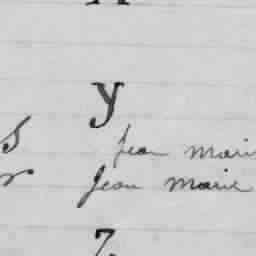 y
s Jean Marie
r Jean Marie
Z